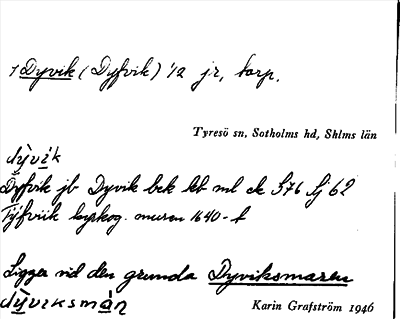 1 Dyvik (Dyfvik) 1/2 jr, torp.
Tyresö sn, Sotholms hd, Shlms län
dỳvik
Dyfvik jb Dyvik bek ml ek S76 Sj 62
Tyfviik kyrkog. muren 1640-t
Ligger vid den grunda Dyviksmaren
dỳviksmán
Karin Grafström 1946